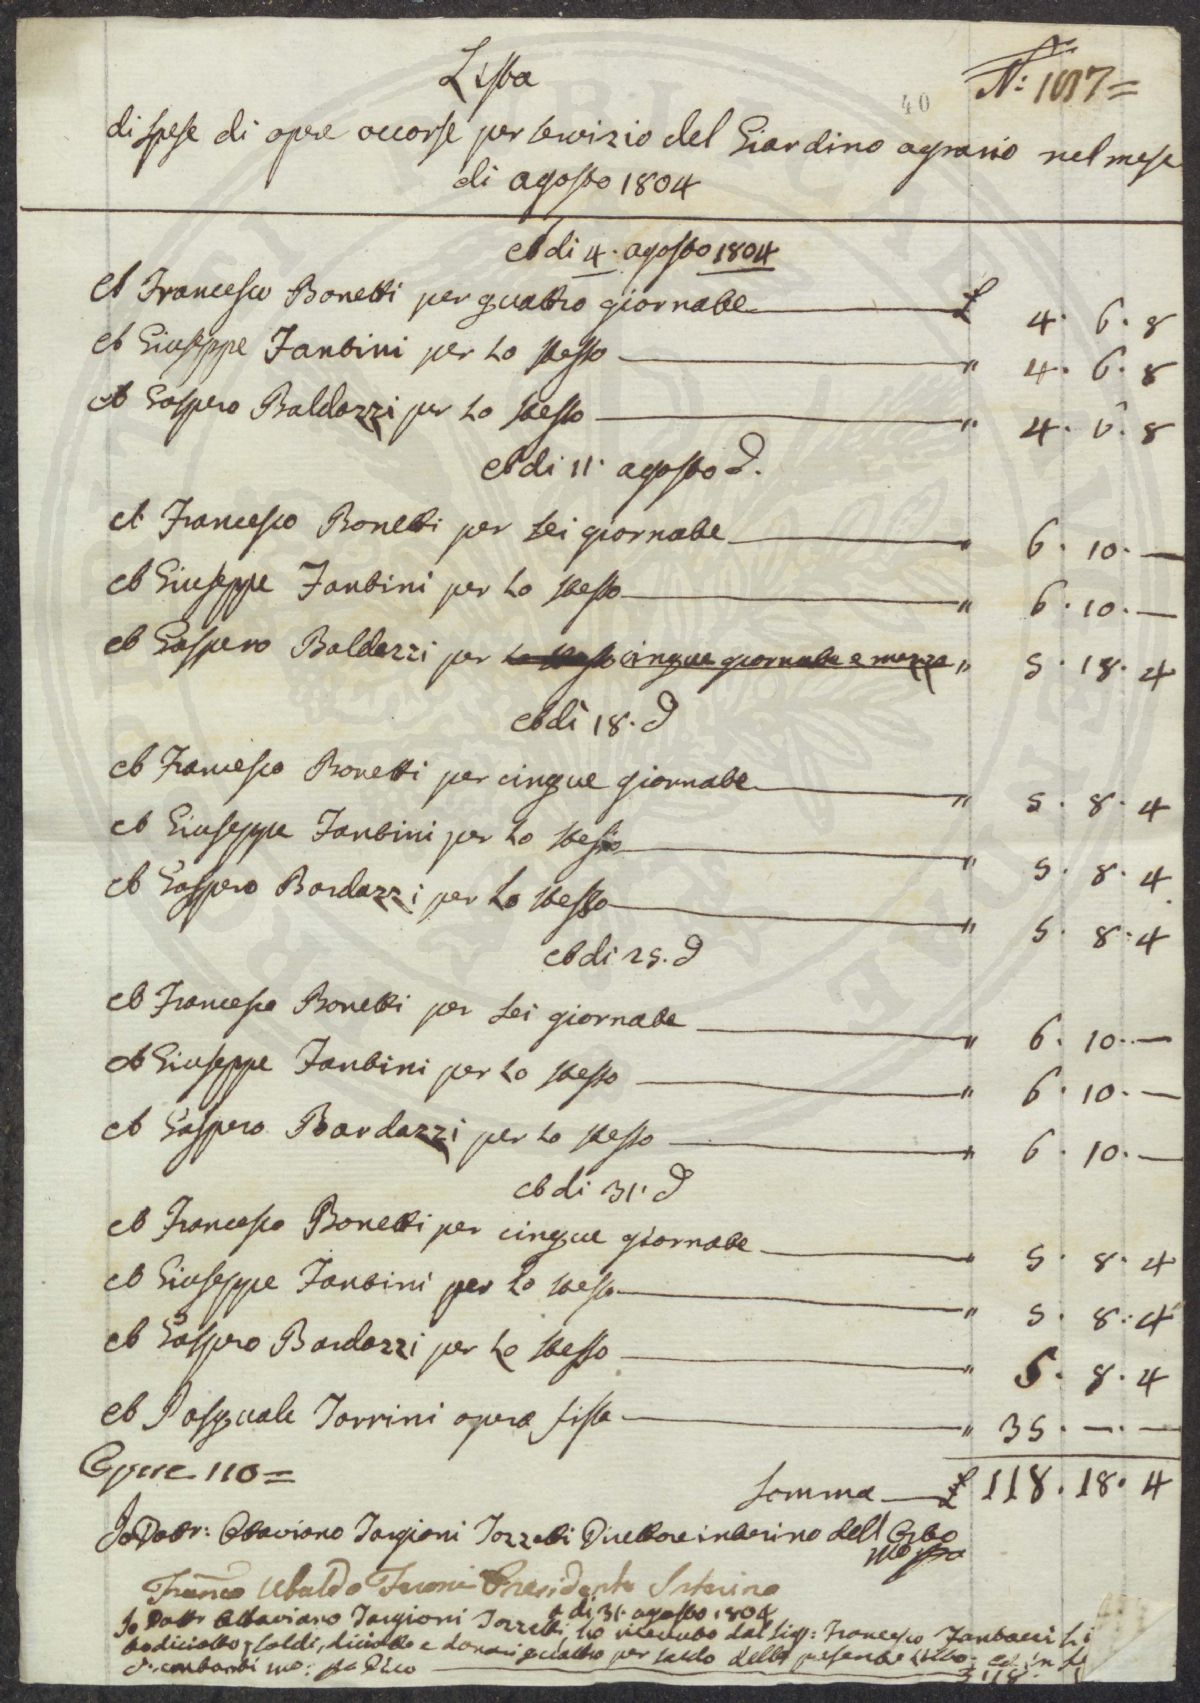 Lista
N: 1017=
40
di spese di opere occorse per servizio del Giardino agrario nel mese
di agosto 1804
A di 4. agosto 1804
A Francesco Bonetti per quattro giornate £ 4. 6. 8
A Giuseppe Fantini per Lo stesso " 4. 6. 8
A Gaspero Baldazzi per Lo stesso " 4. 6. 8
A di 11. agosto d.
A Francesco Bonetti per sei giornate " 6. 10. —
A Giuseppe Fantini per Lo stesso " 6. 10. —
A Gaspero Baldazzi per Lo stesso cinque giornate e mezza " 5. 18. 4
A di 18. d
A Francesco Bonetti per cinque giornate " 5. 8. 4
A Giuseppe Fantini per Lo stesso " 5. 8. 4
A Gaspero Bardazzi per Lo stesso " 5. 8. 4
A di 25. d
A Francesco Bonetti per sei giornate " 6. 10. —
A Giuseppe Fantini per Lo stesso " 6. 10. —
A Gaspero Bardazzi per Lo stesso " 6. 10. —
A di 31. d
A Francesco Bonetti per cinque giornate " 5. 8. 4
A Giuseppe Fantini per Lo stesso " 5. 8. 4
A Gaspero Bardazzi per Lo stesso " 5. 8. 4
A Pasquale Torrini opera fissa " 35. — . —
Opere 110=
Somma £ 118. 18. 4
Io Dottr: Ottaviano Targioni Tozzetti Direttore interino dell Orto
mo ppa
Franco Ubaldo Feroni Presidente Interino
A di 31. agosto 1804
Io Dottr Ottaviano Targioni Tozzetti ho ricevuto dal Sigr: Francesco Fantacci Li
todiciotto, soldi, diciotto e danari quattro per saldo della presente Lista; ed in fe
d. contanti mo: pa Dico
118